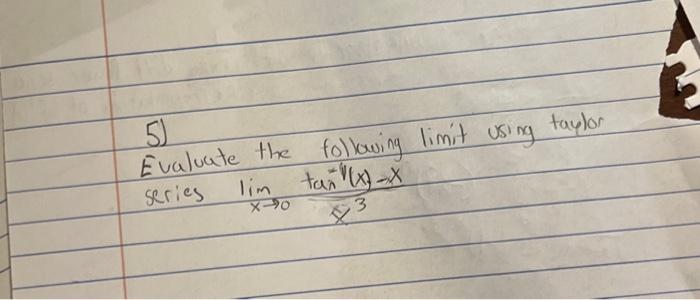 5)
Evaluate the following limit using taylor
series lim x→0 tan⁻¹(x) - x / x³